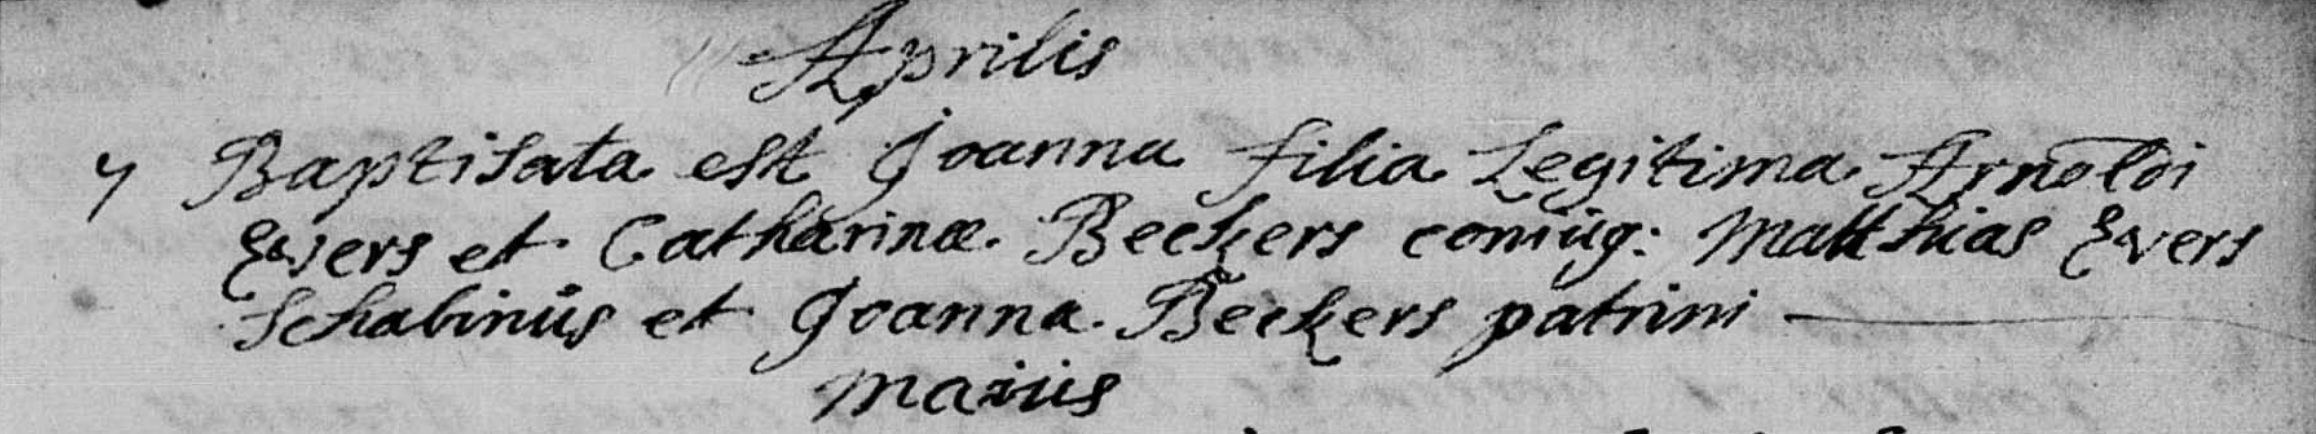 Aprilis
7 Baptisata est Joanna filia Legitima Arnoldi
Evers et Catharinæ Beckers coniũg: Matthias Evers
Schabinŭs et Joanna Beckers patrini
Maiŭs